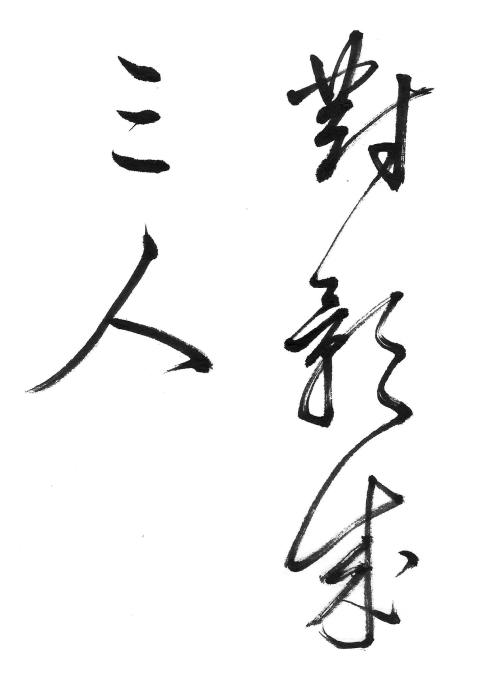 對影成
三人